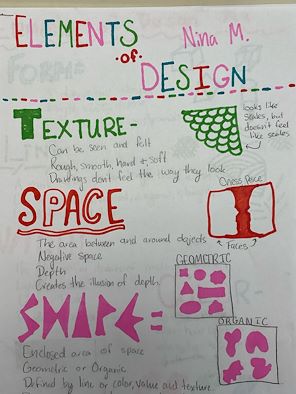 ELEMENTS
of
DESIGN
Nina M.
TEXTURE-
Can be seen and felt
Rough, smooth, hard + soft
Drawings don't feel the way they look
looks like
scales, but
doesn't feel
like scales
SPACE
The area between and around objects
Negative space
Depth
Creates the illusion of depth.
Vase
Faces
SHAPE=
Enclosed area of space
Geometric or Organic
Defined by line or color, value and texture.
GEOMETRIC
ORGANIC